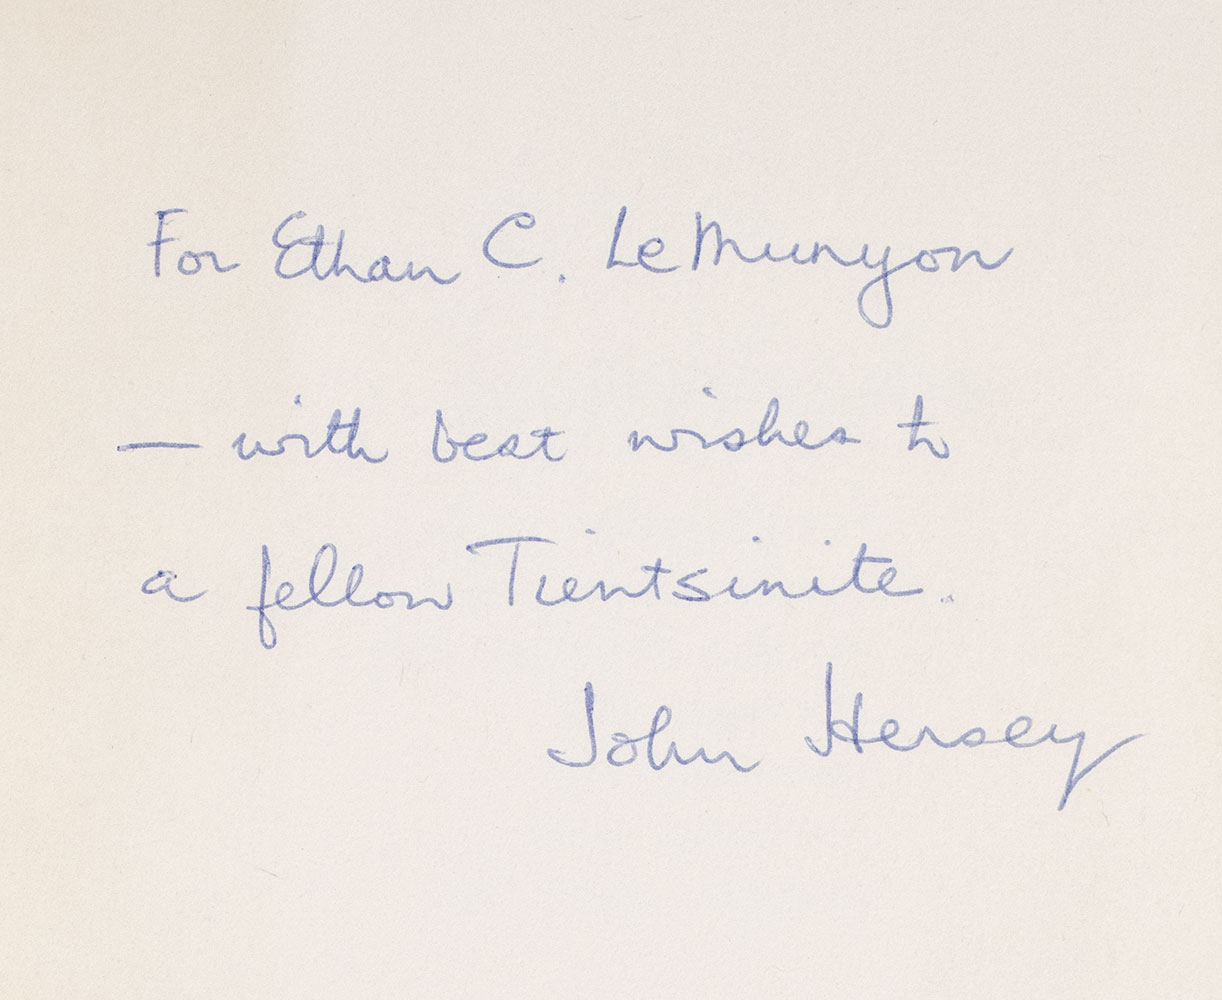 For Ethan C. LeMunyon
— with best wishes to
a fellow Tientsinite.
John Hersey